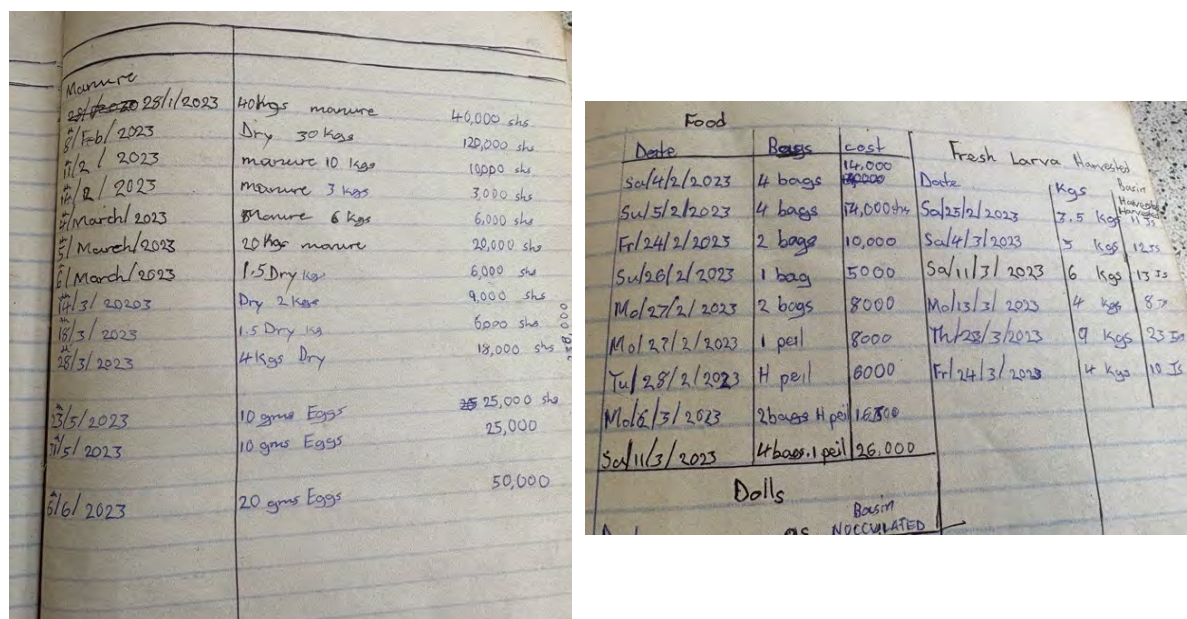 Manure
28/1/2023 40kgs manure 40,000 shs
8th/Feb/2023 Dry 30 Kgs 120,000 shs
11th/2/2023 manure 10 Kgs 10,000 shs
14th/2/2023 manure 3 kgs 3,000 shs
4th/March/2023 Manure 6 Kgs 6,000 shs
5th/March/2023 20 Kgs manure 20,000 shs
6th/March/2023 1.5 Dry kgs 6,000 shs
14th/3/20203 Dry 2 Kgs 9,000 shs
18th/3/2023 1.5 Dry kg 6000 shs
28th/3/2023 4 Kgs Dry 18,000 shs
23rd/5/2023 10 gms Eggs 25,000 shs
/5/2023 10 gms Eggs 25,000
6th/6/2023 20 gms Eggs 50,000
Food
Date Bags cost
14,000
Sa/4/2/2023 4 bags
Su/5/2/2023 4 bags 14,000shs
Fr/24/2/2023 2 bags 10,000
Su/26/2/2023 1 bag 5000
Mo/27/2/2023 2 bags 8000
Mo/27/2/2023 1 peil 8000
Tu/28/2/2023 H peil 6000
Mo/6/3/2023 2bags H peil
Sa/11/3/2023 4 bags.1 peil 26,000
Dolls
Basin
NOCCULATED
Fresh Larva Harvested
Date Kgs Basin Harvested
Sa/25/2/2023 3.5 Kgs 11 Js
Sa/4/3/2023 5 Kgs 12 Js
Sa/11/3/2023 6 Kgs 13 Js
Mo/13/3/2023 4 kgs 8 J
Th/23/3/2023 9 Kgs 23 Js
Fr/24/3/2023 4 Kgs 10 Js